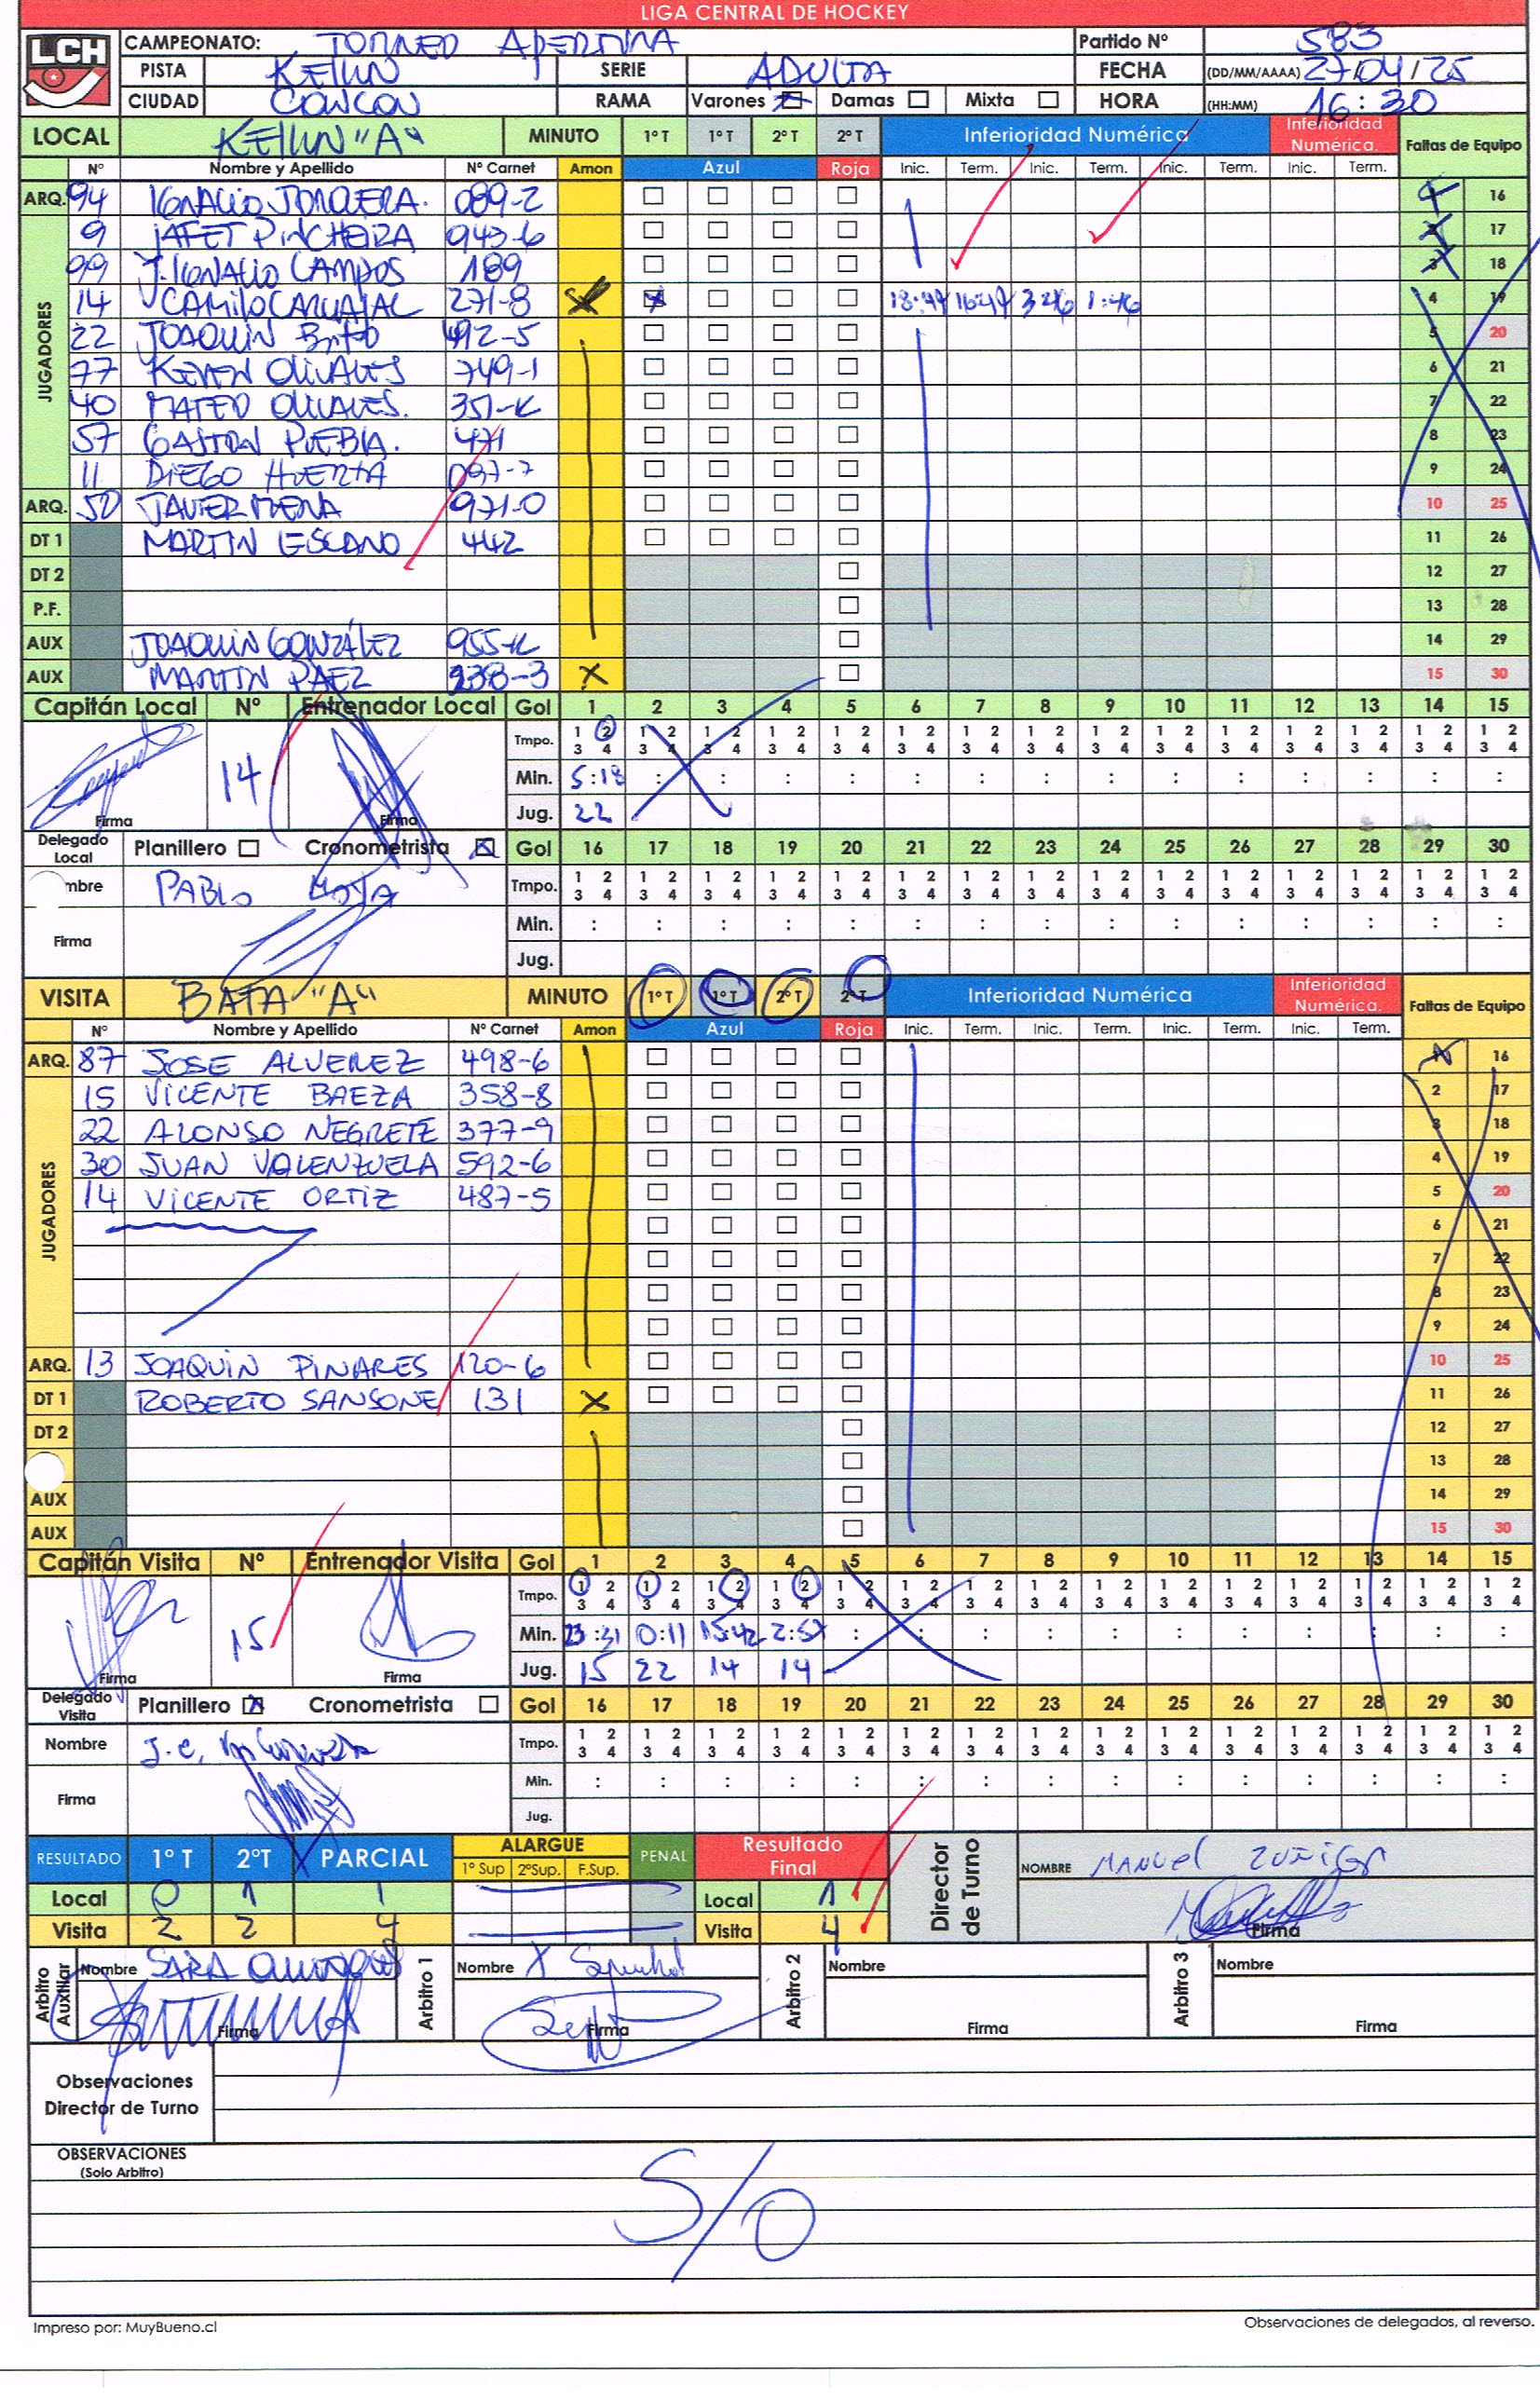 LIGA CENTRAL DE HOCKEY
LCH
CAMPEONATO: TORNEO APERTURA Partido Nº 583
PISTA KEILUN SERIE ADULTA FECHA (DD/MM/AAAA) 27/04/25
CIUDAD CONCON RAMA Varones Damas Mixta HORA (HH:MM) 16:30
LOCAL KEILUN "A" MINUTO 1º T 1º T 2º T 2º T Inferioridad Numérica Inferioridad Numérica. Faltas de Equipo
Nº Nombre y Apellido Nº Carnet Amon Azul Roja Inic. Term. Inic. Term. Inic. Term. Inic. Term.
JUGADORES
ARQ. 94 IGNACIO JORQUERA. 089-2 16
9 JAFET PINCHEIRA 943-6 17
99 J. IGNACIO CAMPOS 189 3 18
14 CAMILO CARVAJAL 271-8 X X 18:49 16:49 3:46 1:46 4 19
22 JOAQUIN Brito 492-5 5 20
77 KEVEN OLIVARES 749-1 6 21
40 MATEO OLIVARES. 351-K 7 22
57 GASTON PUEBLA. 471 8 23
11 DIEGO HUERTA 097-7 9 24
ARQ. 50 JAVIER MENA 971-0 10 25
DT 1 MARTIN LESCANO 442 11 26
DT 2 12 27
P.F. 13 28
AUX JOAQUIN GONZÁLEZ 955-K 14 29
AUX MARTIN PAEZ 938-3 X 15 30
Capitán Local Nº Entrenador Local Gol 1 2 3 4 5 6 7 8 9 10 11 12 13 14 15
Tmpo. 1 2 3 4 1 2 3 4 1 2 3 4 1 2 3 4 1 2 3 4 1 2 3 4 1 2 3 4 1 2 3 4 1 2 3 4 1 2 3 4 1 2 3 4 1 2 3 4 1 2 3 4 1 2 3 4 1 2 3 4
14 Min. 5:18 : : : : : : : : : : : : : :
Firma Firma Jug. 22
Delegado Local Planillero Cronometrista X Gol 16 17 18 19 20 21 22 23 24 25 26 27 28 29 30
mbre PABLO MOYA Tmpo. 1 2 3 4 1 2 3 4 1 2 3 4 1 2 3 4 1 2 3 4 1 2 3 4 1 2 3 4 1 2 3 4 1 2 3 4 1 2 3 4 1 2 3 4 1 2 3 4 1 2 3 4 1 2 3 4 1 2 3 4
Firma Min. : : : : : : : : : : : : : : :
Jug.
VISITA BATA "A" MINUTO 1º T 1º T 2º T 2º T Inferioridad Numérica Inferioridad Numérica. Faltas de Equipo
Nº Nombre y Apellido Nº Carnet Amon Azul Roja Inic. Term. Inic. Term. Inic. Term. Inic. Term.
JUGADORES
ARQ. 87 JOSE ALVEREZ 498-6 16
15 VICENTE BAEZA 358-8 2 17
22 ALONSO NEGRETE 377-9 3 18
30 JUAN VALENZUELA 592-6 4 19
14 VICENTE ORTIZ 487-5 5 20
6 21
7 22
8 23
9 24
ARQ. 13 JOAQUIN PINARES 120-6 10 25
DT 1 ROBERTO SANSONE 131 X 11 26
DT 2 12 27
13 28
AUX 14 29
AUX 15 30
Capitán Visita Nº Entrenador Visita Gol 1 2 3 4 5 6 7 8 9 10 11 12 13 14 15
Tmpo. 1 2 3 4 1 2 3 4 1 2 3 4 1 2 3 4 1 2 3 4 1 2 3 4 1 2 3 4 1 2 3 4 1 2 3 4 1 2 3 4 1 2 3 4 1 2 3 4 1 2 3 4 1 2 3 4 1 2 3 4
15 Min. 23:31 0:11 15:42 2:57 : : : : : : : : : : :
Firma Firma Jug. 15 22 14 14
Delegado Visita Planillero X Cronometrista Gol 16 17 18 19 20 21 22 23 24 25 26 27 28 29 30
Nombre J.C. Tmpo. 1 2 3 4 1 2 3 4 1 2 3 4 1 2 3 4 1 2 3 4 1 2 3 4 1 2 3 4 1 2 3 4 1 2 3 4 1 2 3 4 1 2 3 4 1 2 3 4 1 2 3 4 1 2 3 4 1 2 3 4
Firma Min. : : : : : : : : : : : : : : :
Jug.
RESULTADO 1º T 2ºT PARCIAL ALARGUE 1º Sup 2ºSup. F.Sup. PENAL Resultado Final Director de Turno NOMBRE MANUEL ZUÑIGA
Local 0 1 1 Local 1
Visita 2 2 4 Visita 4 Firma
Arbitro Auxiliar Nombre SARA Arbitro 1 Nombre Arbitro 2 Nombre Arbitro 3 Nombre
Firma Firma Firma Firma
Observaciones
Director de Turno
OBSERVACIONES
(Solo Arbitro)
S/O
Impreso por: MuyBueno.cl Observaciones de delegados, al reverso.